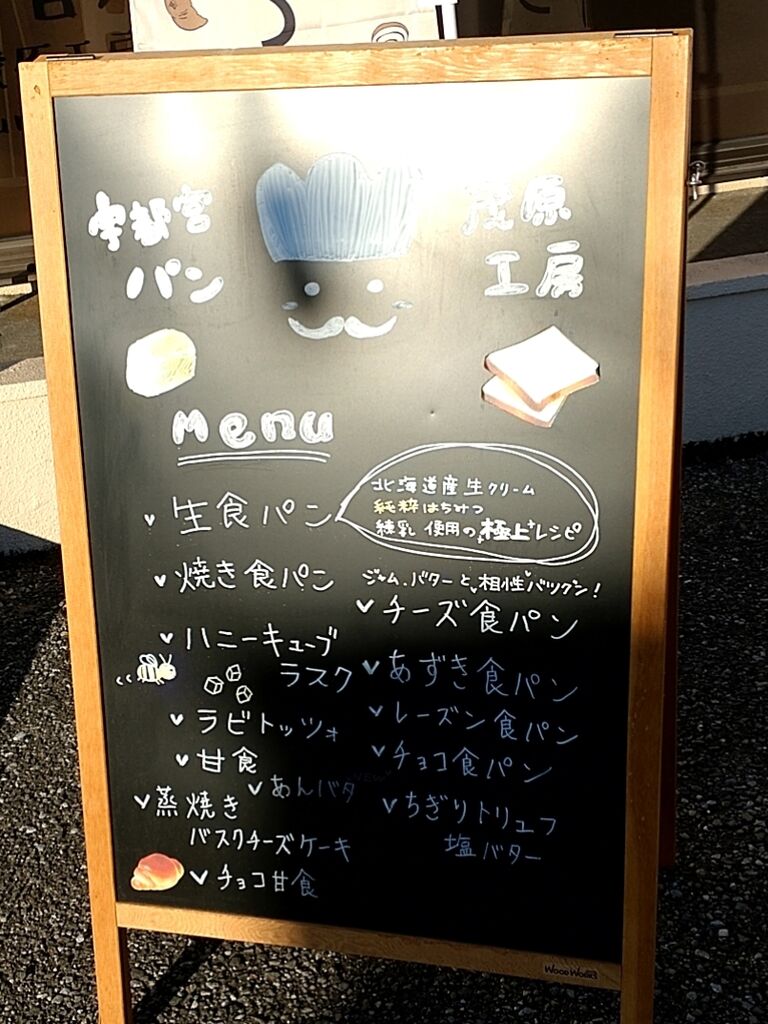 宇都宮
パン
茂原
工房
Menu
生食パン
北海道産生クリーム
純粋はちみつ
練乳使用の極上レシピ
焼き食パン
ジャム、バターと相性バツグン!
チーズ食パン
ハニーキューブ
ラスク
あずき食パン
ラビトッツォ
レーズン食パン
甘食
チョコ食パン
あんバタ
NEW
蒸焼き
バスクチーズケーキ
ちぎりトリュフ
塩バター
チョコ甘食
WOODWORKS